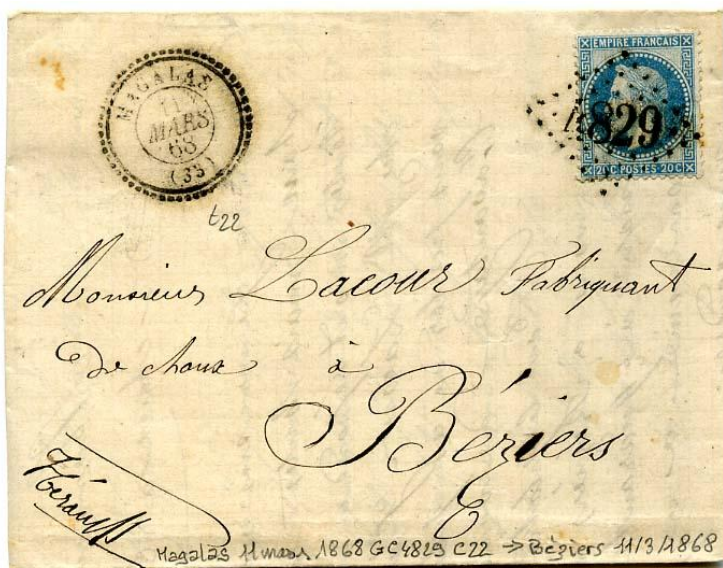 MAGALAS
11
MARS
68
(33)
EMPIRE FRANCAIS
4829
20C POSTES 20C
t22
Monsieur Lacour Fabriquant
de chaux à
Béziers
Hérault
Magalas 11 mars 1868 GC4829 C22 → Béziers 11/3/1868